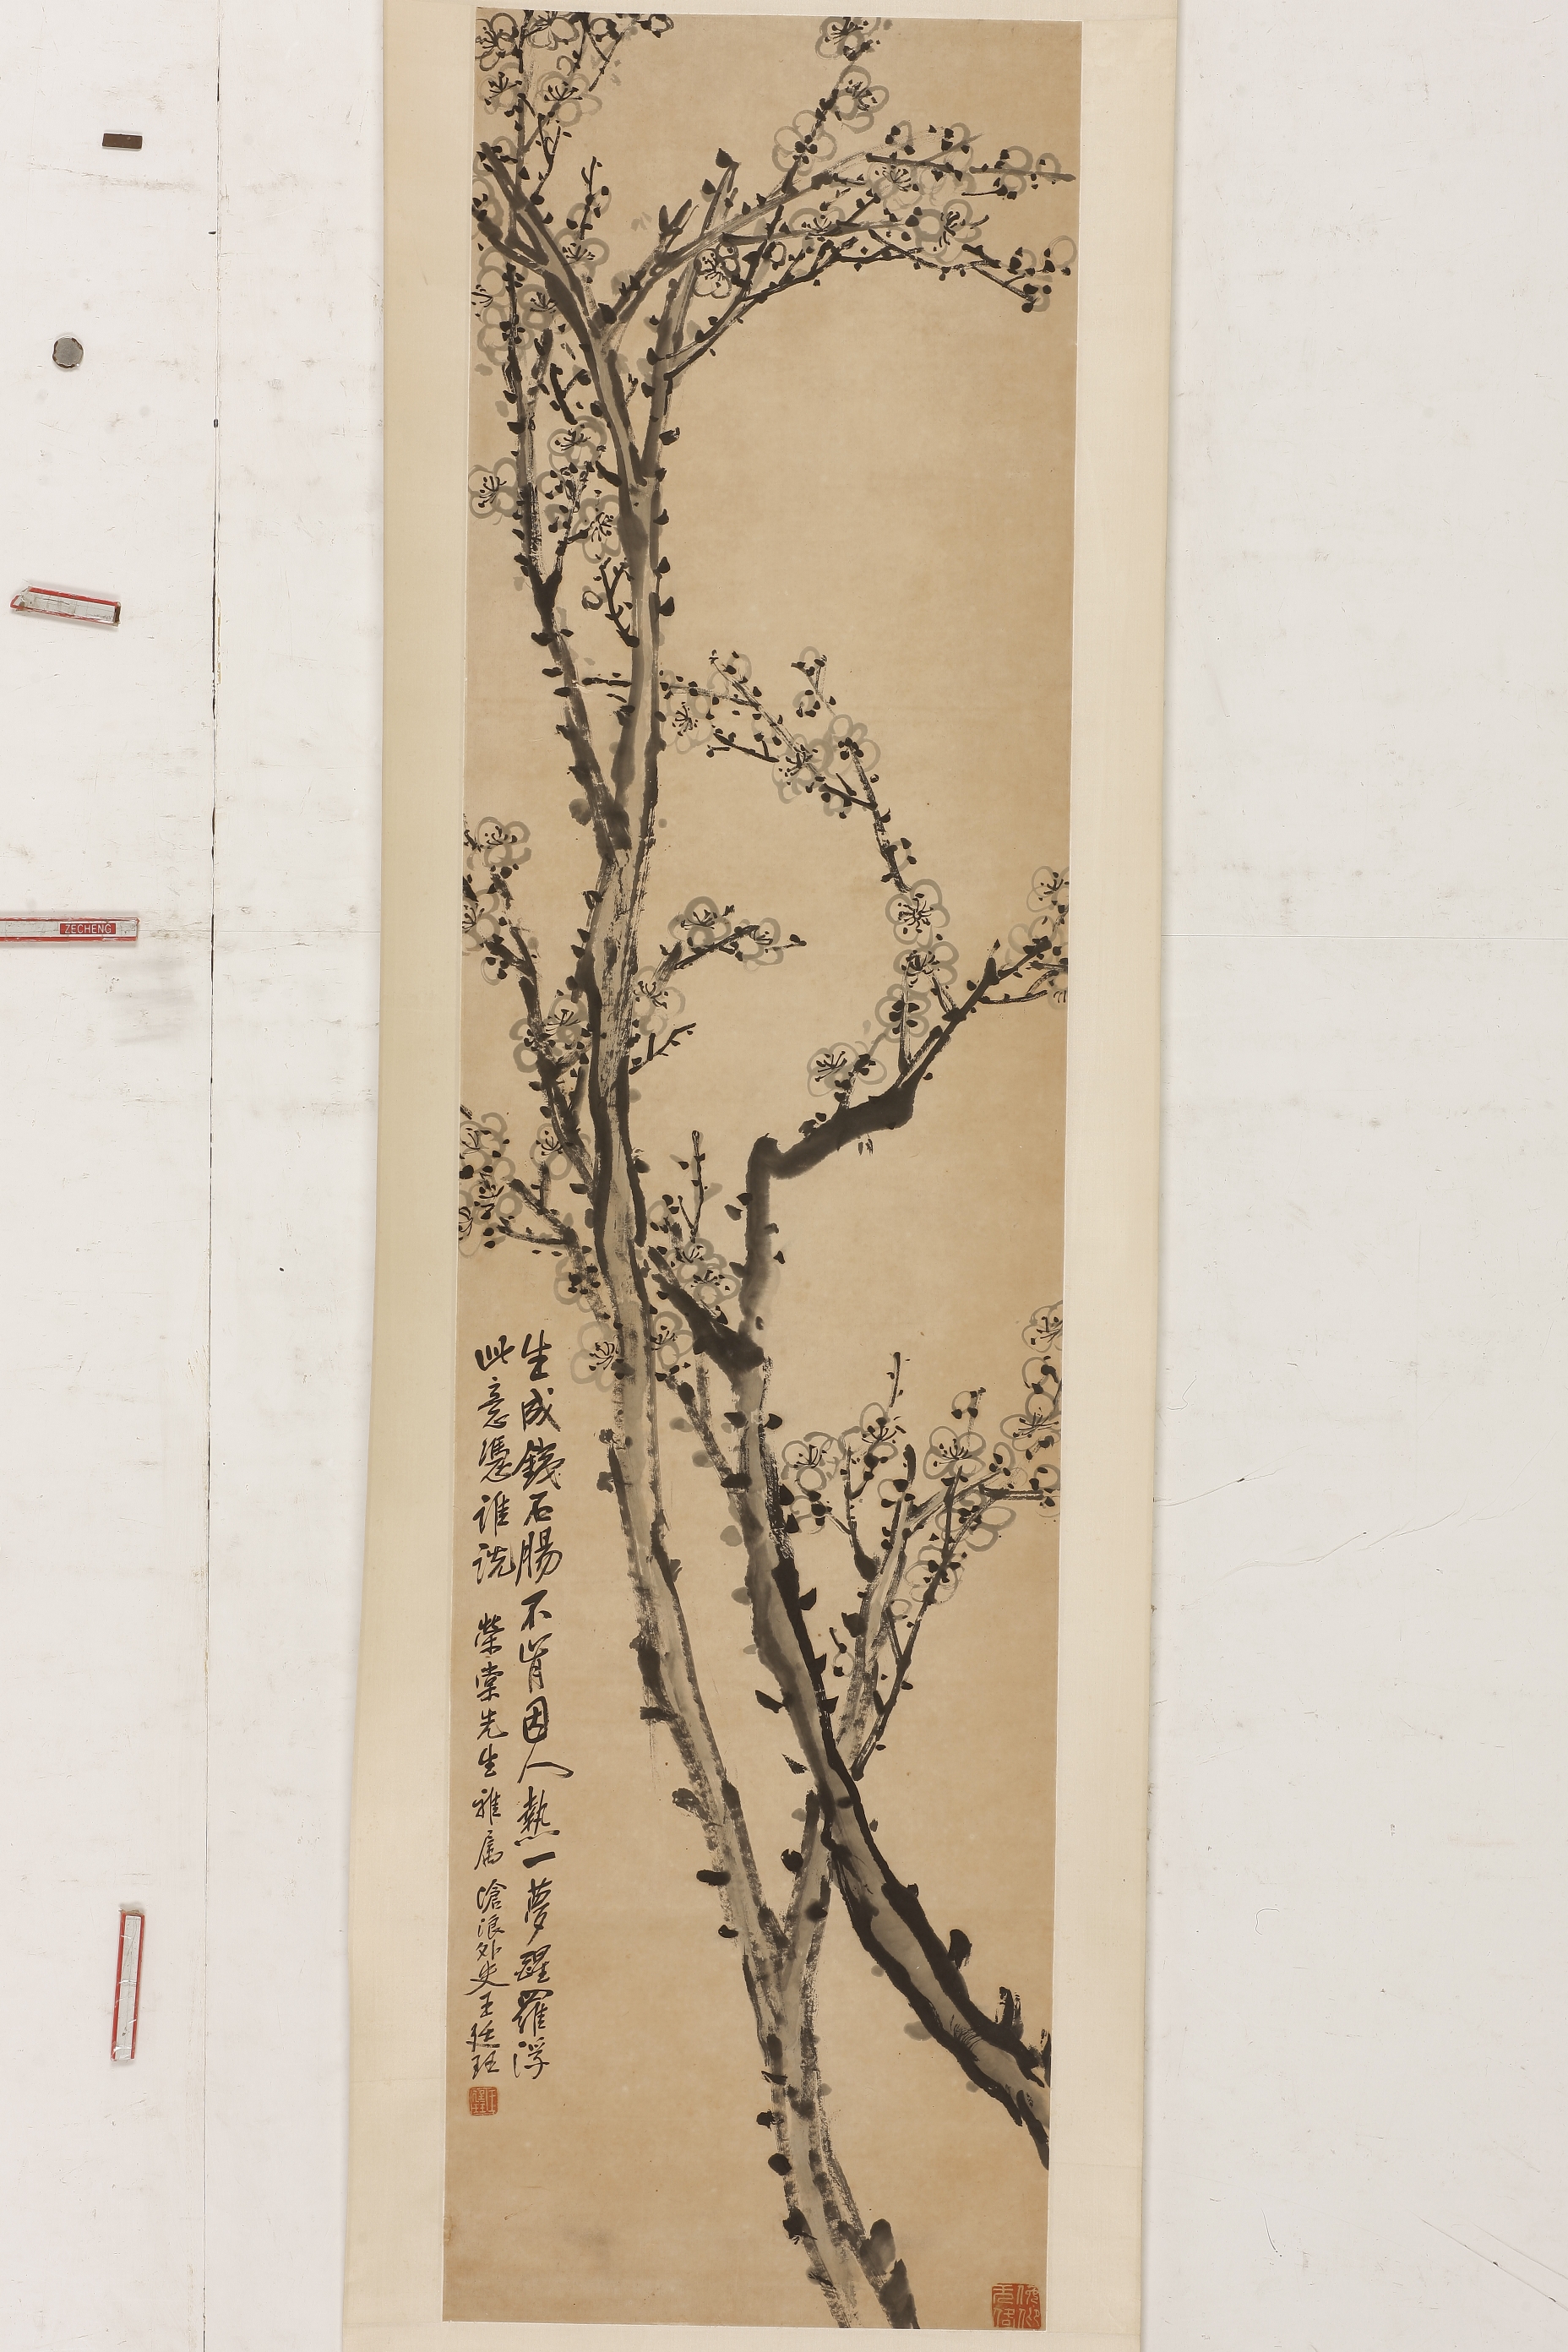 生成鐵石腸不肯因人熱一夢醒羅浮
此意憑誰說 榮棠先生雅属 滄浪外史王廷珏
ZECHENG